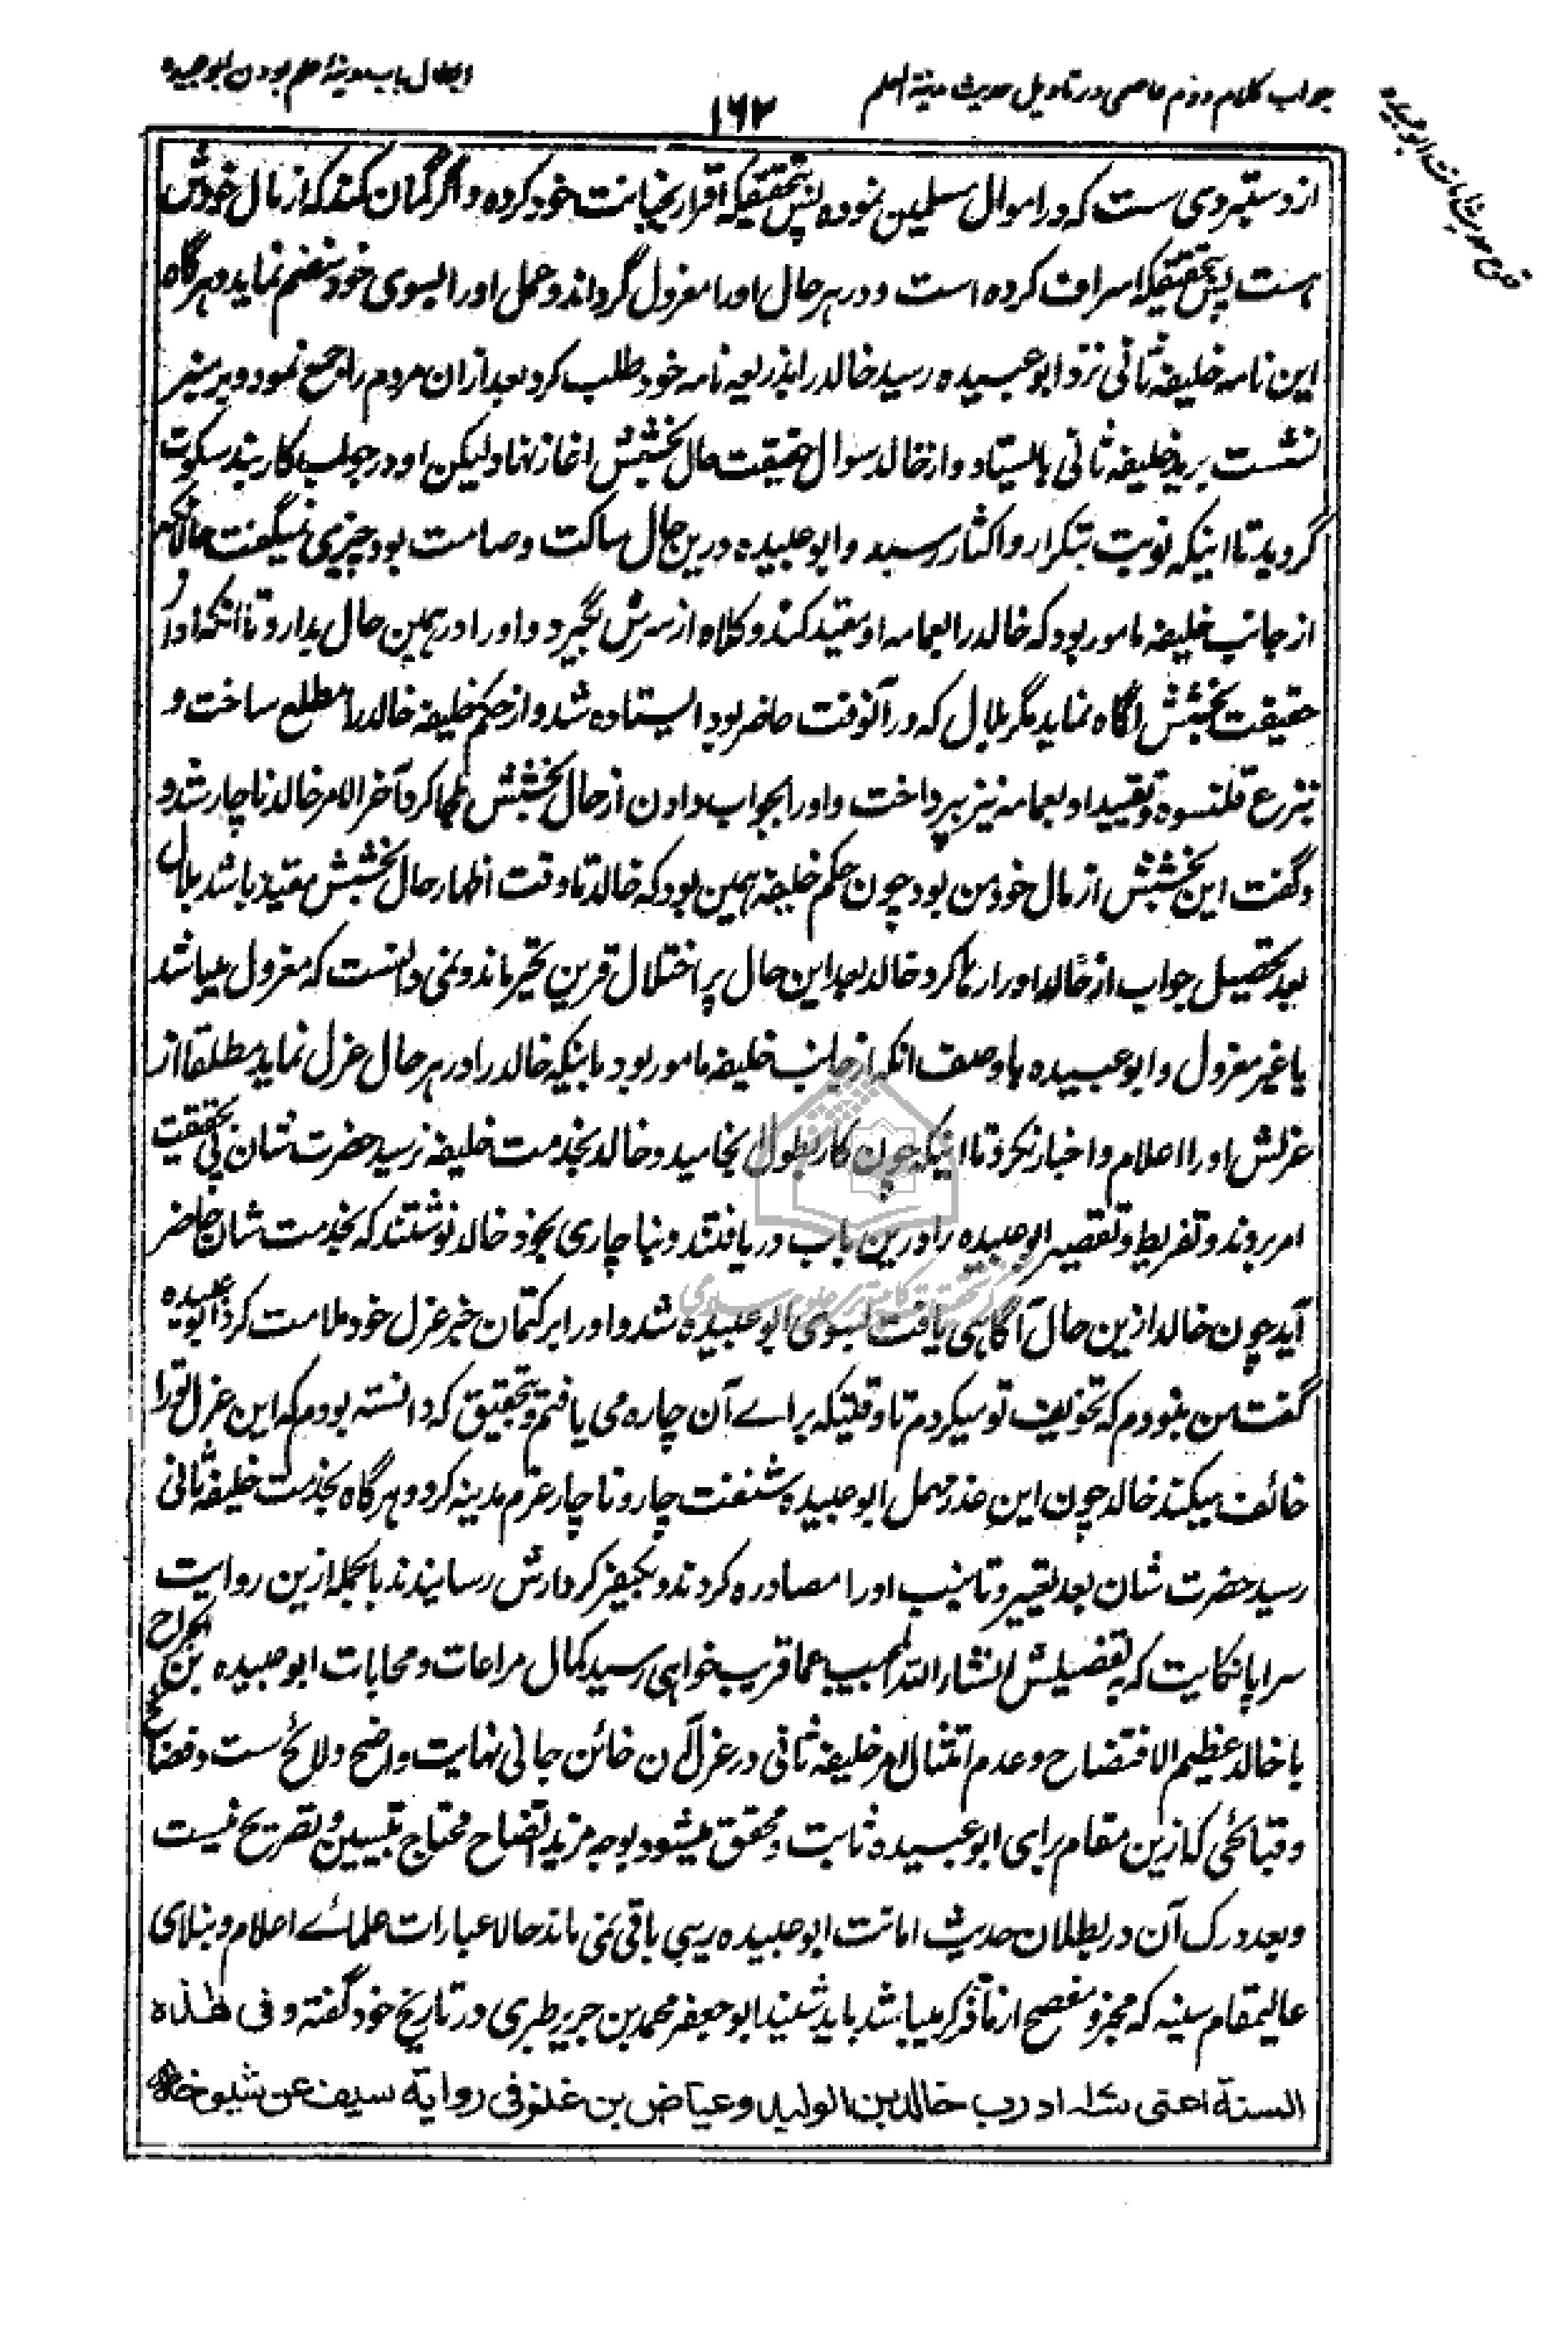 جواب کلام دوم عاصمی در تاویل حدیث مدینة العلم
۱۶۲
ابطال باب مدینة العلم بودن ابو عبیده
از دستبردی ست که در اموال مسلمین نموده پس بتحقیقکه اقرار بخیانت خود کرده و اگر گمان کند که از مال خودش
هست پس بتحقیقکه اسراف کرده است و در هر حال او را معزول گرداند و عمل او را بسوی خود منضم نماید و هر گاه
این نامه خلیفه ثانی نزد ابو عبیده رسید خالد را بذریعه نامه خود طلب کرد بعد ازان مردم را جمع نمود و بر منبر
نشست برید خلیفه ثانی بایستاد و از خالد سوال حقیقت حال بخشش اغاز نهاد لیکن او در جواب کاربند سکوت
گردید تا اینکه نوبت بتکرار و اکثار رسید و ابو عبیده درین حال ساکت و صامت بود چیزی نمیگفت حالانکه
از جانب خلیفه مامور بود که خالد را بعمامه او مقید کند و کلاه از سرش بگیرد و او را در همین حال بدارد تا انکه او از
حقیقت بخشش اگاه نماید مگر بلال که در آنوقت حاضر بود ایستاده شد و از حکم خلیفه خالد را مطلع ساخت و
بنزع قلنسوه و تقیید او بعمامه نیز بپرداخت و او را بجواب دادن از حال بخشش ملجا کرد آخر الامر خالد ناچار شد و
و گفت این بخشش از مال خود من بود چون حکم خلیفه همین بود که خالد تا وقت اظهار حال بخشش مقید باشد بلال
بعد تحصیل جواب از خالد او را رها کرد خالد بعد این حال پر اختلال قرین تحیر ماند و نمی دانست که معزول میباشد
یا غیر معزول و ابو عبیده باوصف انکه از جانب خلیفه مامور بود باینکه خالد را در هر حال عزل نماید مطلقا از
عزلش او را اعلام و اخبار نکرد تا اینکه چون کار بطول انجامید و خالد بخدمت خلیفه نرسید حضرت شان پی بحقیقت
امر بردند و تفریط و تقصیر ابو عبیده را درین باب دریافتند و بناچاری بخود خالد نوشتند که بخدمت شان حاضر
آید چون خالد ازین حال آگاهی یافت بسوی ابو عبیده شد و او را بر کتمان خبر عزل خود ملامت کرد ابو عبیده
گفت من نبودم که تخویف تو میکردم تا وقتیکه براے آن چاره می یافتم و بتحقیق که دانسته بودم که این عزل تو را
خائف میکند خالد چون این عذر مهمل ابو عبیده شنفت چار و ناچار عزم مدینه کرد و هر گاه بخدمت خلیفه ثانی
رسید حضرت شان بعد تعییر و تانیب او را مصادره کردند و بکیفر کردارش رسانیدند بالجمله ازین روایت
سراپا نکایت که بتفصیلش انشاء الله المجیب عما قریب خواهی رسید کمال مراعات و محابات ابو عبیده بن الجراح
با خالد عظیم الافتضاح و عدم امتثال امر خلیفه ثانی در عزل آن خائن جانی نهایت واضح و لائح ست و فضائح
و قبائحی که ازین مقام برای ابو عبیده ثابت و محقق میشود بوجه مزید اتضاح محتاج تبیین و تصریح نیست
و بعد درک آن در بطلان حدیث امانت ابو عبیده ریبی باقی نمی ماند حالا عبارات علمائے اعلام و نبلای
عالیمقام سنیه که مخبر و مفصح از ماذکر میباشد باید شنید ابو جعفر محمد بن جریر طبری در تاریخ خود گفته و فی هذه
السنة اعنی سنة ادرب خالد بن الولید و عیاض بن غنم فی روایة سیف عن شیوخه